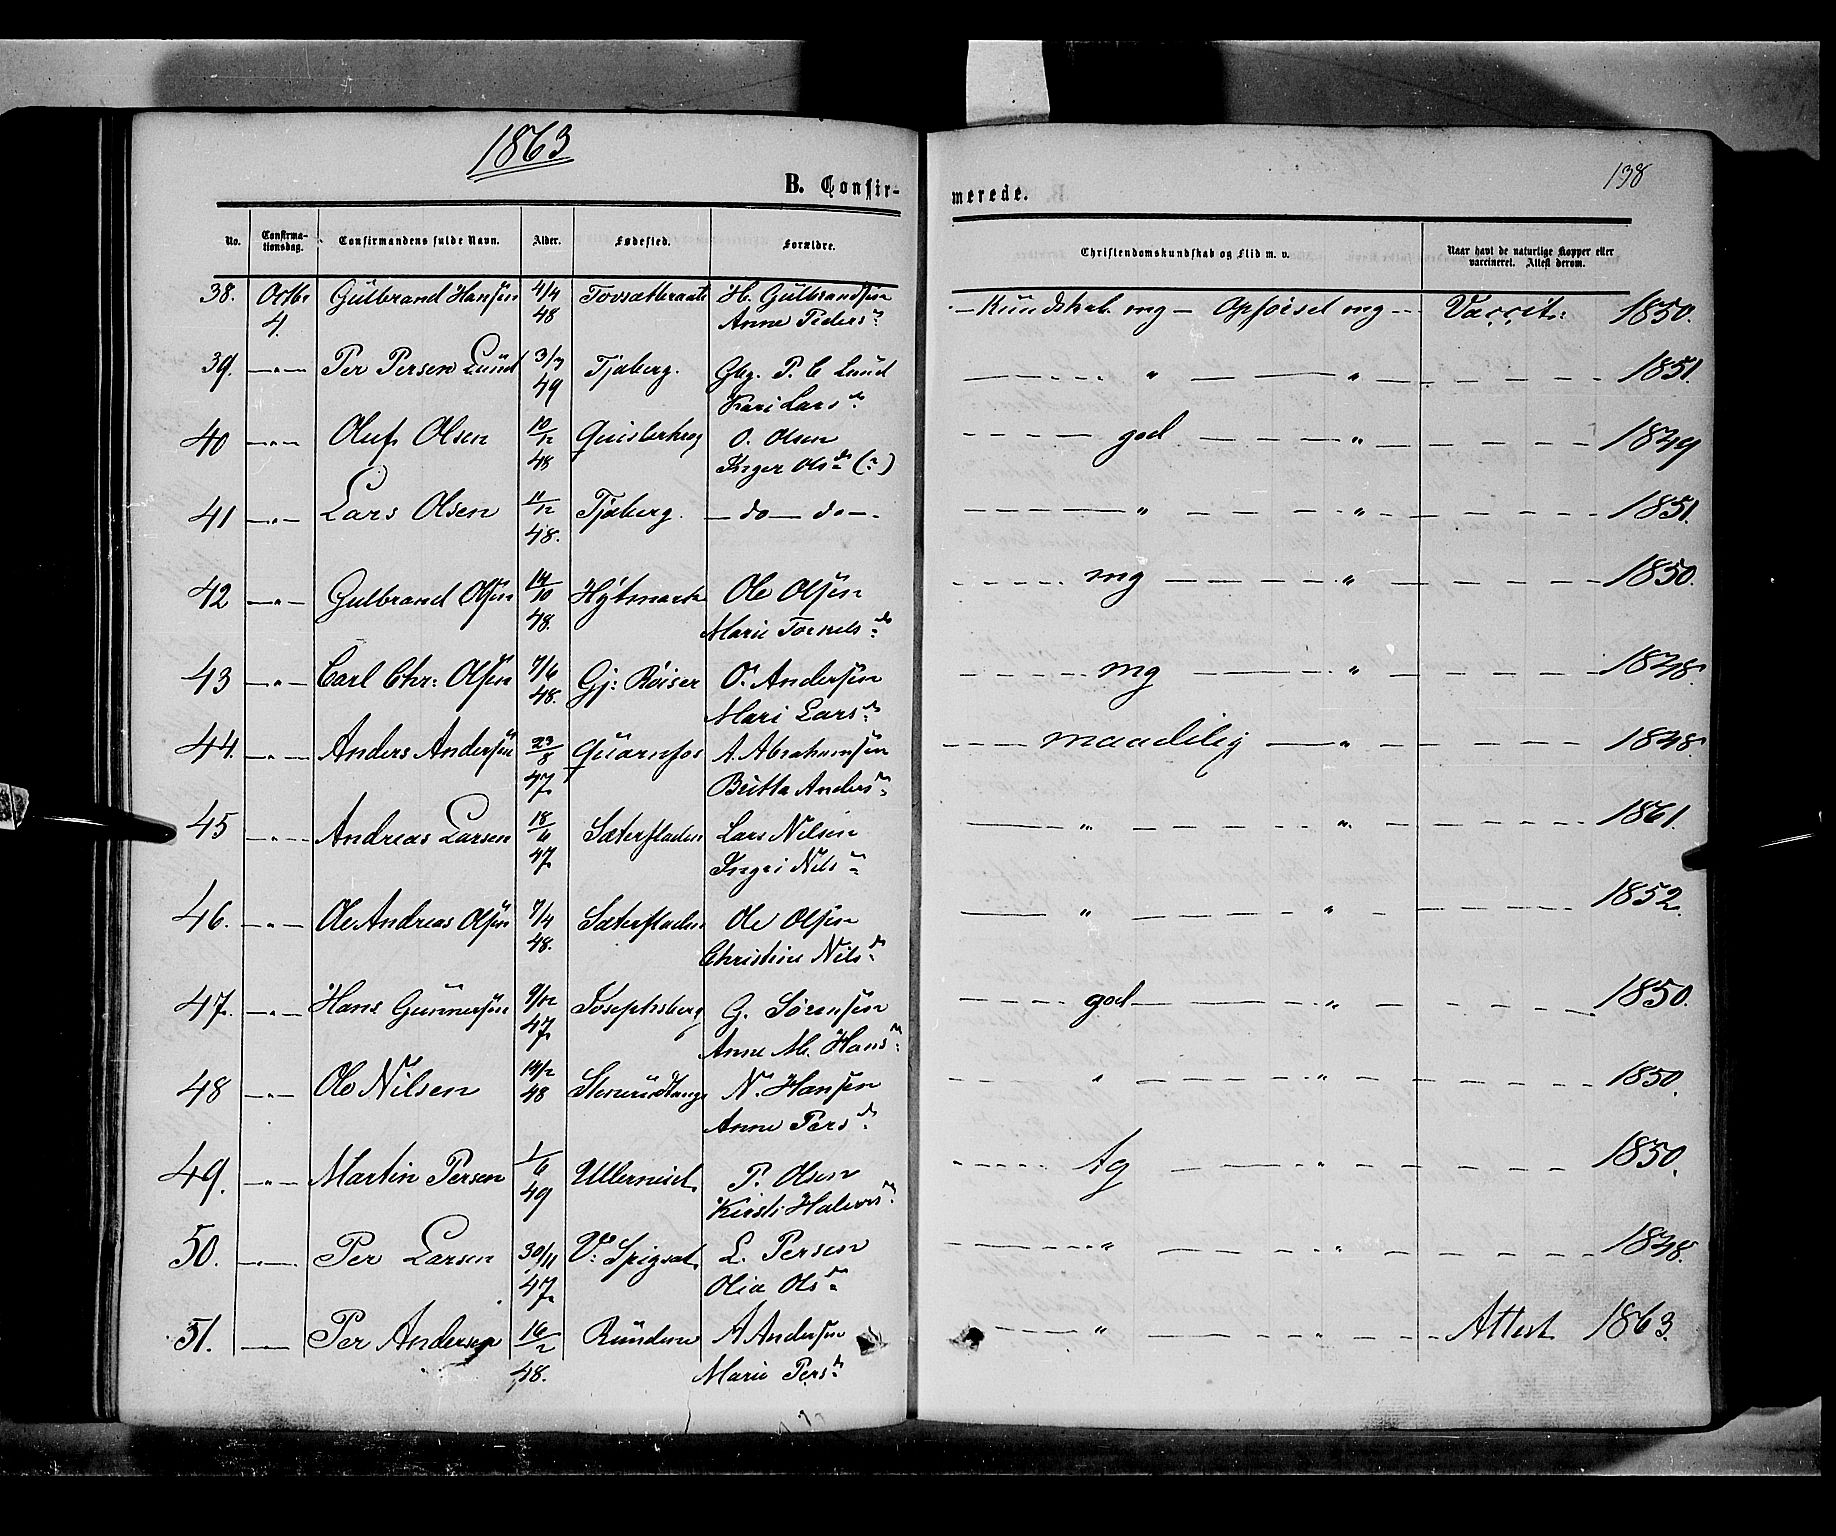 1863
138
B. Confir-
merede.
No. Confirma-tionsdag. Confirmandens fulde Navn. Alder. Fødested. Forældre. Christendomskundskab og Flid m. v. Naar havt de naturlige Kopper eller vaccineret. Attest derom.
38. Octbr 4. Gulbrand Hansen 4/4 48 H. Gulbrandsen — Kundskab mg — Opførsel mg — Vaccit: 1850.
Anne Peders:
39. —„— Per Persen Lund 3/7 49 Tjøberg. Gbg. P. C Lund — „ — „ — 1851.
Kari Lars:
40 —„— Oluf Olsen 10/12 48 O. Olsen — god — „ — 1849
Inger Ols:
41 —„— Lars Olsen 11/12 48. Tjøberg. — do — do — — „ — „ — 1851.
42 —„— Gulbrand Olsen 14/10 48. Ole Olsen — mg — „ — 1850.
Marie
43 —„— Carl Chr: Olsen 7/6 48. Gj: Røiser O. Andersen — mg — „ — 1848.
Mari Lars:
44. —„— Anders Andersen 23/8 47 Quarnfos A. Abrahamsen — maadelig — „ — 1848.
Britta Anders:
45 —„— Andreas Larsen 18/6 47 Sæterfladen Lars Nilsen — „ — „ — 1861.
Ingri Nils:
46. —„— Ole Andreas Olsen 7/4 48. Sæterfladen Ole Olsen — „ — „ — 1852.
Christine Nils:
47. —„— Hans Gunnersen 9/12 47 Josephsberg G. Sørensen — god — „ — 1850.
Anne M. Hans:
48 —„— Ole Nilsen 48 N. Hansen — „ — „ — 1850.
Anne Pers:
49. —„— Martin Persen 1/6 49 Ullerneset. P. Olsen — tg — „ — 1850.
Kirsti Halvors:
50. —„— Per Larsen 30/11 47 V: Spigset. L. Persen — „ — „ — 1848.
Olia Ols:
51. —— Per Andersen 16/2 48. Rundene A Andersen — „ — „ — Attest 1863.
Marie Pers: